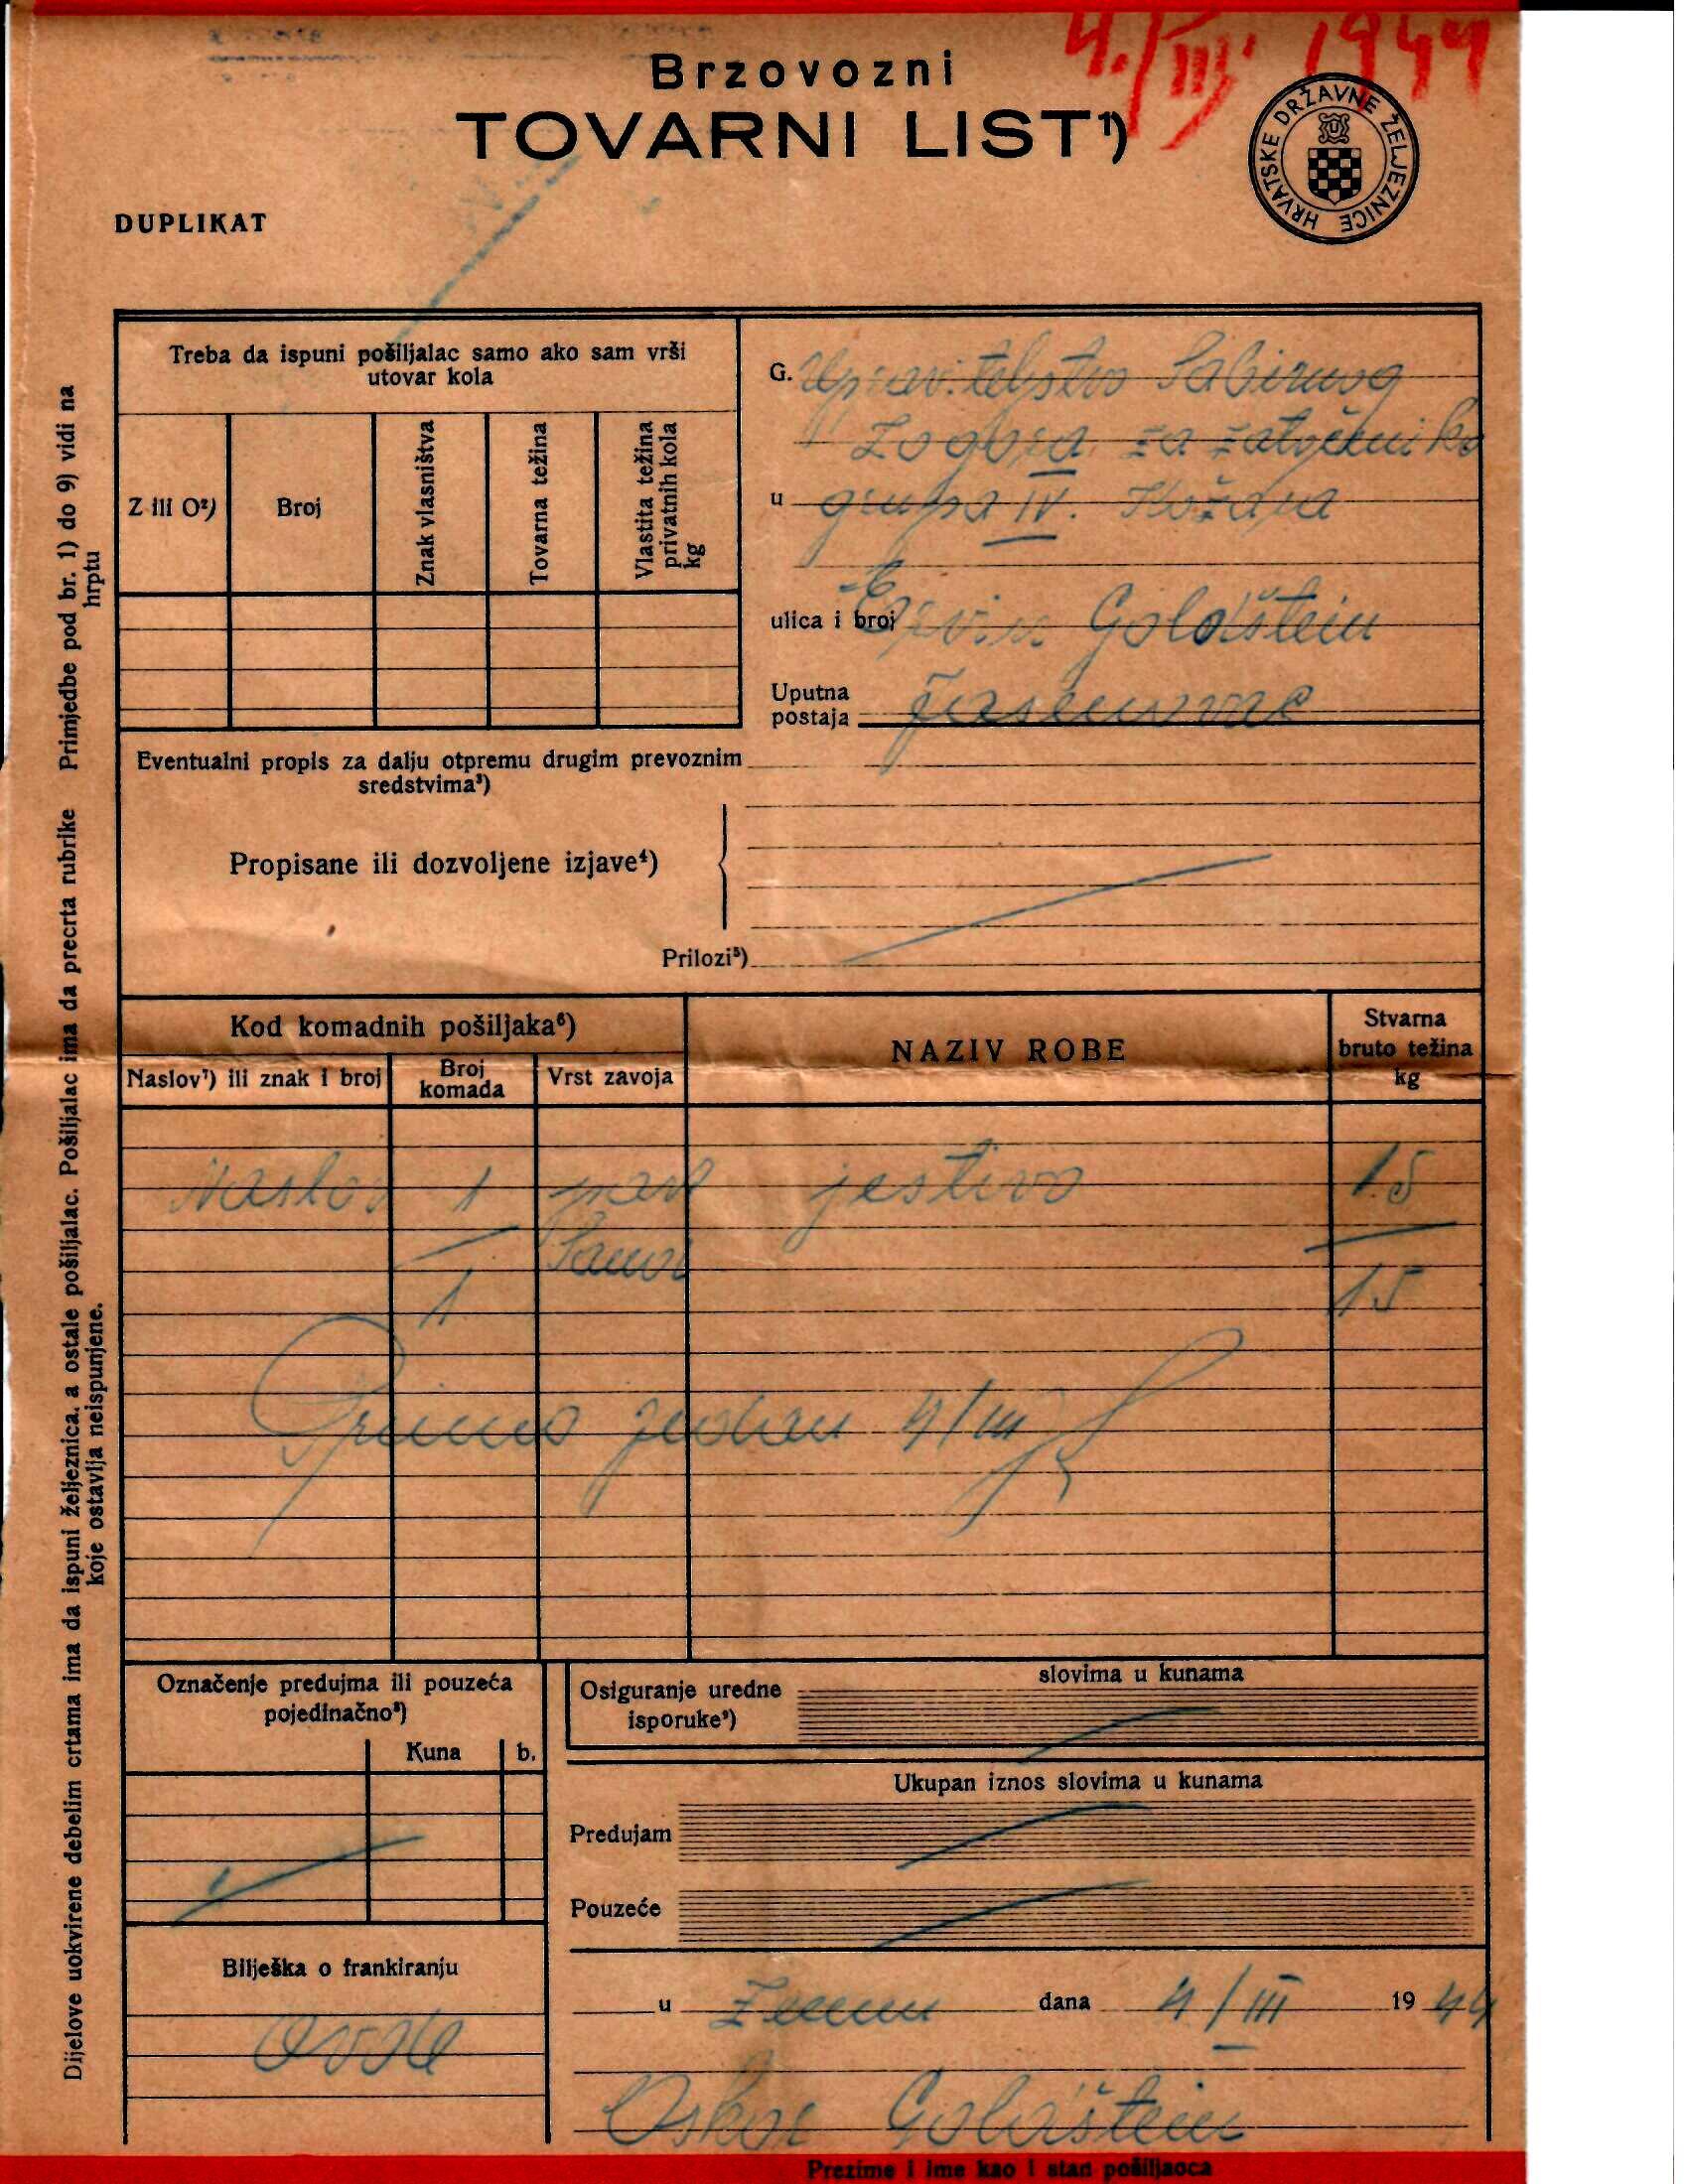 4./III. 1944
Brzovozni
TOVARNI LIST¹)
HRVATSKE DRŽAVNE ŽELJEZNICE
U
DUPLIKAT
Treba da ispuni pošiljalac samo ako sam vrši
utovar kola
Z ili O²)
Broj
Znak vlasništva
Tovarna težina
Vlastita težina
privatnih kola
kg
G. Upraviteljstvo Sabirnog
Logora za zatočenike
u grupa IV. Kožara
ulica i broj Ervin Goldštein
Uputna
postaja Jasenovac
Eventualni propis za dalju otpremu drugim prevoznim
sredstvima³)
Propisane ili dozvoljene izjave⁴)
Prilozi⁵)
Kod komadnih pošiljaka⁶)
Naslov⁷) ili znak i broj
Broj
komada
Vrst zavoja
NAZIV ROBE
Stvarna
bruto težina
kg
Naslov 1 jestivo 15
1 15
Primio jedan 4/III
Označenje predujma ili pouzeća
pojedinačno⁸)
Kuna b.
Osiguranje uredne
isporuke⁹)
slovima u kunama
Ukupan iznos slovima u kunama
Predujam
Pouzeće
Bilješka o frankiranju
u Zemun dana 4/III 1944
Oskar Goldštein
Prezime i ime kao i stan pošiljaoca
Primjedbe pod br. 1) do 9) vidi na
hrptu
Dijelove uokvirene debelim crtama ima da ispuni željeznica, a ostale pošiljalac. Pošiljalac ima da precrta rubrike
koje ostavlja neispunjene.